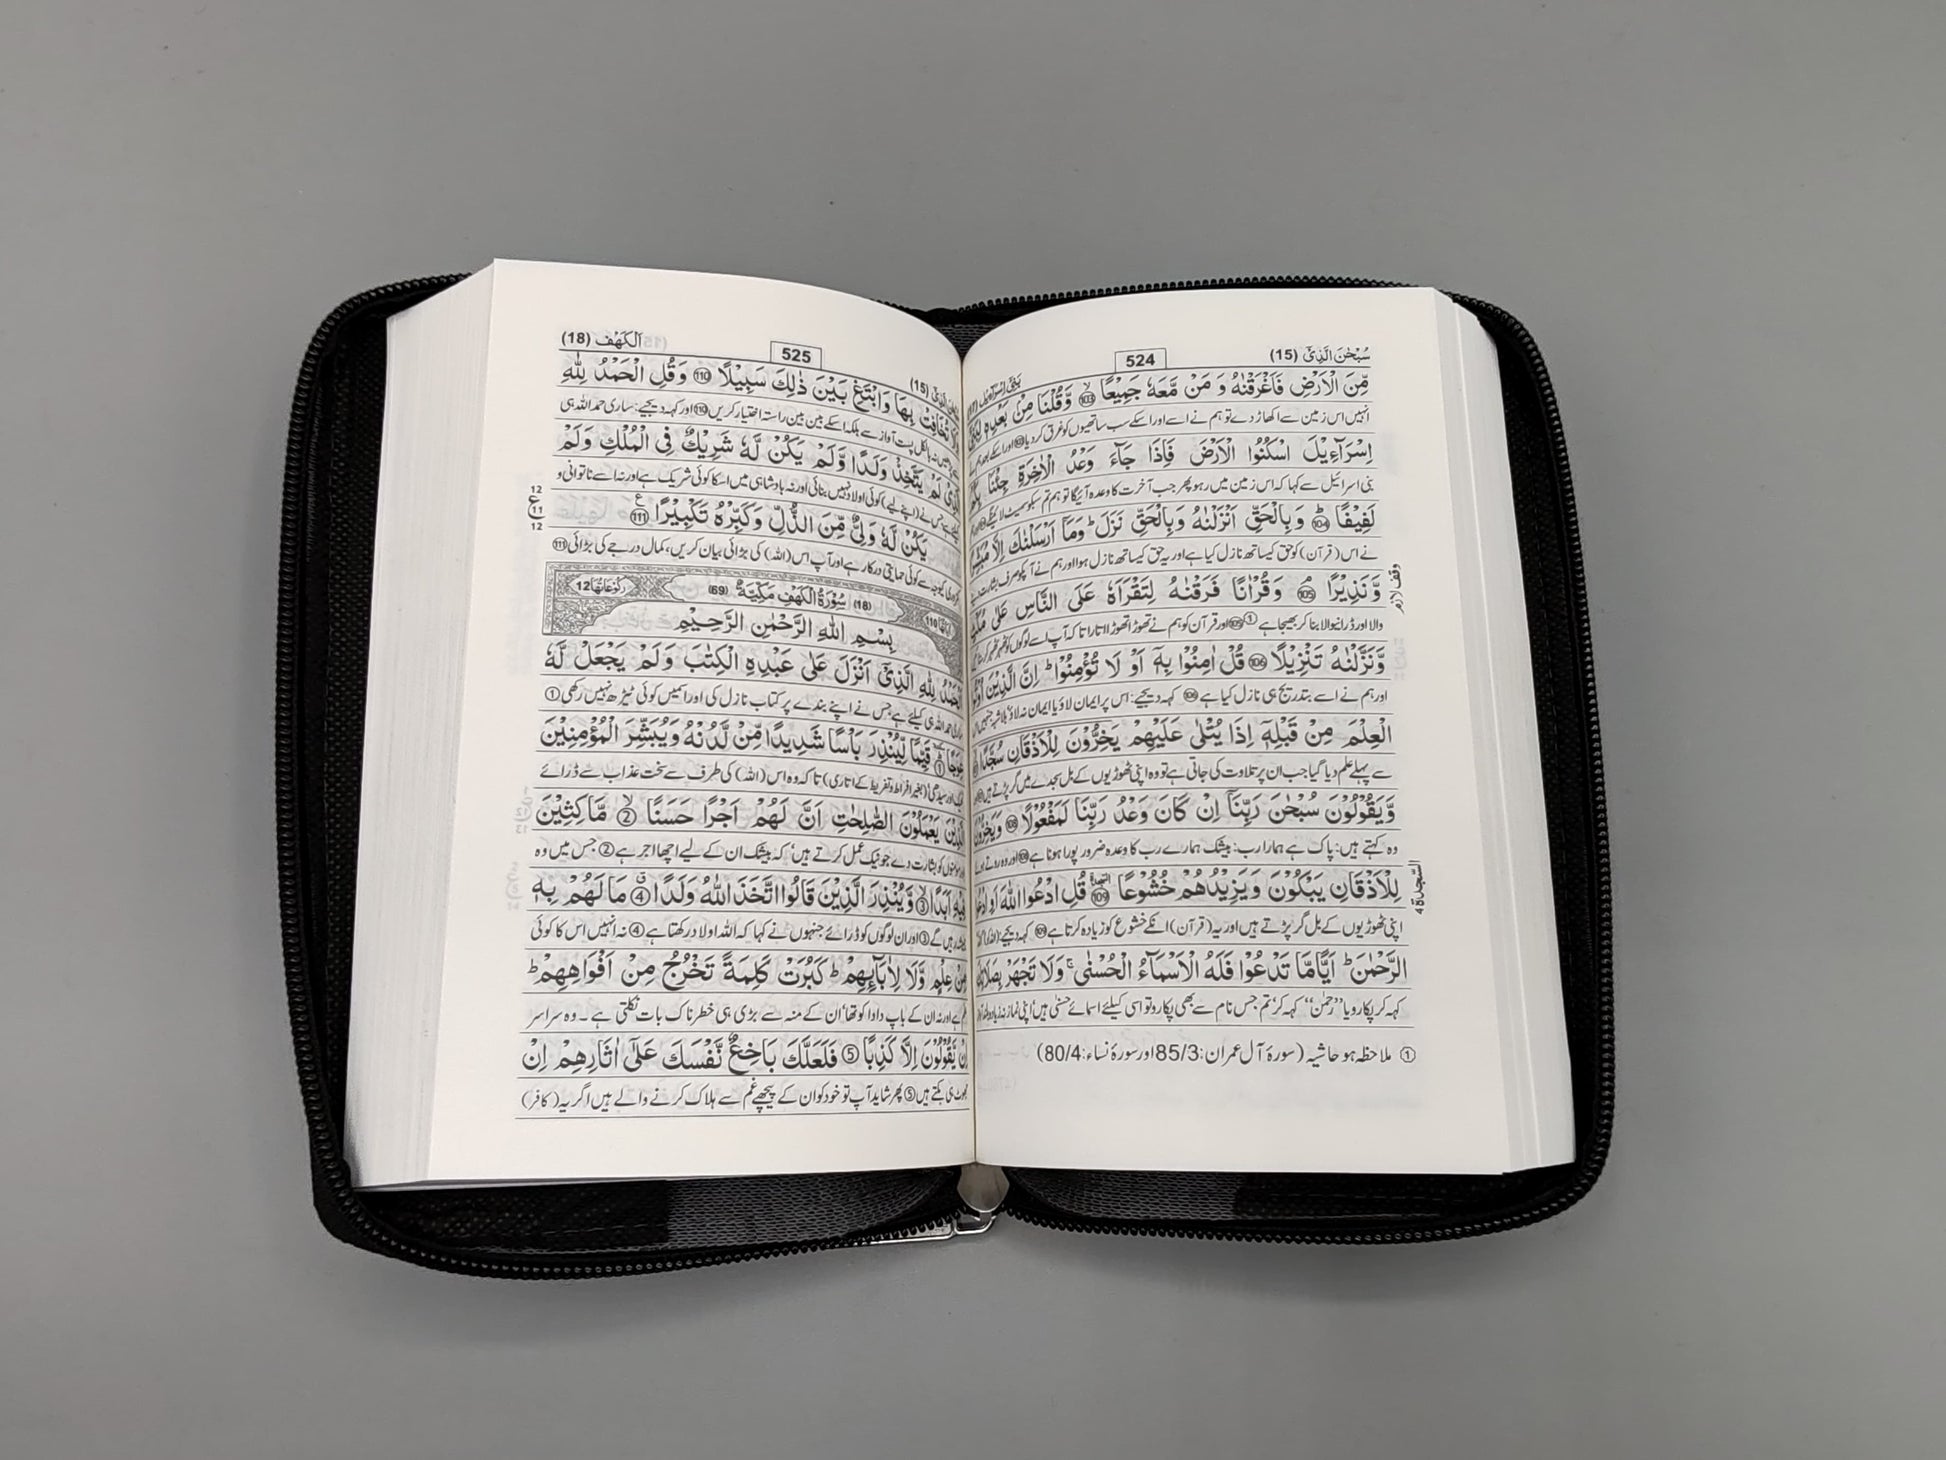 سُبْحٰنَ الَّذِیْٓ (15)
524
بَنِیْٓ اِسْرَآءِیْل (17)
مِّنَ الْاَرْضِ فَاَغْرَقْنٰهُ وَ مَنْ مَّعَهٗ جَمِیْعًا ۙ﴿103﴾ وَّقُلْنَا مِنْۢ بَعْدِهٖ لِبَنِیْٓ
انہیں اس زمین سے اکھاڑ دے تو ہم نے اسے اور اسکے سب ساتھیوں کو غرق کر دیا ﴿103﴾ اور اسکے بعد ہم نے
اِسْرَآءِیْلَ اسْكُنُوا الْاَرْضَ فَاِذَا جَآءَ وَعْدُ الْاٰخِرَةِ جِئْنَا بِكُمْ
بنی اسرائیل سے کہا کہ اس زمین میں رہو پھر جب آخرت کا وعدہ آئیگا تو ہم تم سبکو سمیٹ لائینگے
لَفِیْفًا ؕ﴿104﴾ وَبِالْحَقِّ اَنْزَلْنٰهُ وَبِالْحَقِّ نَزَلَ ؕ وَمَاۤ اَرْسَلْنٰكَ اِلَّا مُبَشِّرًا
نے اس (قرآن) کو حق کیساتھ نازل کیا ہے اور یہ حق کیساتھ نازل ہوا اور ہم نے آپکو صرف بشارت دینے
وَّنَذِیْرًا ۘ﴿105﴾ وَقُرْاٰنًا فَرَقْنٰهُ لِتَقْرَاَهٗ عَلَی النَّاسِ عَلٰی مُكْثٍ
وقف لازم
والا اور ڈرانیوالا بنا کر بھیجا ہے ﴿105﴾① اور قرآن کو ہم نے تھوڑا تھوڑا اتارا تاکہ آپ اسے لوگوں کو ٹھہر ٹھہر کر سنائیں
وَّنَزَّلْنٰهُ تَنْزِیْلًا ﴿106﴾ قُلْ اٰمِنُوْا بِهٖۤ اَوْ لَا تُؤْمِنُوْا ؕ اِنَّ الَّذِیْنَ اُوْتُوا
اور ہم نے اسے بتدریج ہی نازل کیا ہے ﴿106﴾ کہہ دیجیے: اس پر ایمان لاؤ یا ایمان نہ لاؤ بلاشبہ جنہیں اس
الْعِلْمَ مِنْ قَبْلِهٖۤ اِذَا یُتْلٰی عَلَیْهِمْ یَخِرُّوْنَ لِلْاَذْقَانِ سُجَّدًا
سے پہلے علم دیا گیا جب ان پر تلاوت کی جاتی ہے تو وہ اپنی ٹھوڑیوں کے بل سجدے میں گر پڑتے ہیں
وَّیَقُوْلُوْنَ سُبْحٰنَ رَبِّنَاۤ اِنْ كَانَ وَعْدُ رَبِّنَا لَمَفْعُوْلًا ﴿108﴾ وَیَخِرُّوْنَ
وہ کہتے ہیں: پاک ہے ہمارا رب: بیشک ہمارے رب کا وعدہ ضرور پورا ہونا ہے ﴿108﴾ اور وہ روتے ہوئے
لِلْاَذْقَانِ یَبْكُوْنَ وَیَزِیْدُهُمْ خُشُوْعًا ﴿109﴾ قُلِ ادْعُوا اللّٰهَ اَوِ ادْعُوا
السجدة 4
اپنی ٹھوڑیوں کے بل گر پڑتے ہیں اور یہ (قرآن) انکے خشوع کو زیادہ کرتا ہے ﴿109﴾ کہہ دیجیے:
الرَّحْمٰنَ ؕ اَیًّا مَّا تَدْعُوْا فَلَهُ الْاَسْمَآءُ الْحُسْنٰی ۚ وَلَا تَجْهَرْ بِصَلَاتِكَ
کہہ کر پکارو یا ”رحمٰن“ کہہ کر تم جس نام سے بھی پکارو تو اسی کیلئے اسمائے حسنیٰ ہیں اپنی نماز نہ زیادہ
① ملاحظہ ہو حاشیہ (سورۂ آل عمران: 85/3 اور سورۂ نساء: 80/4)
سُبْحٰنَ الَّذِیْٓ (15)
525
اَلْكَهْف (18)
وَلَا تُخَافِتْ بِهَا وَابْتَغِ بَیْنَ ذٰلِكَ سَبِیْلًا ﴿110﴾ وَقُلِ الْحَمْدُ لِلّٰهِ
نہ بالکل پست آواز سے بلکہ اسکے بین بین راستہ اختیار کریں ﴿110﴾ اور کہہ دیجیے: ساری حمد اللہ ہی
الَّذِیْ لَمْ یَتَّخِذْ وَلَدًا وَّلَمْ یَكُنْ لَّهٗ شَرِیْكٌ فِی الْمُلْكِ وَلَمْ
کیلئے ہے جس نے (اپنے لیے) کوئی اولاد نہیں بنائی اور نہ بادشاہی میں اسکا کوئی شریک ہے اور نہ اسے ناتوانی و
یَكُنْ لَّهٗ وَلِیٌّ مِّنَ الذُّلِّ وَكَبِّرْهُ تَكْبِیْرًا ﴿111﴾
12 ع 11 12
کمزوری کیوجہ سے کوئی حمایتی درکار ہے اور آپ اس (اللہ) کی بڑائی بیان کریں، کمال درجے کی بڑائی ﴿111﴾
اٰیاتُهَا 110 (18) سُوْرَةُ الْكَهْفِ مَكِّیَّةٌ (69) رُكُوْعَاتُهَا 12
بِسْمِ اللّٰهِ الرَّحْمٰنِ الرَّحِیْمِ
اَلْحَمْدُ لِلّٰهِ الَّذِیْۤ اَنْزَلَ عَلٰی عَبْدِهِ الْكِتٰبَ وَلَمْ یَجْعَلْ لَّهٗ
ساری حمد اللہ ہی کیلئے ہے جس نے اپنے بندے پر کتاب نازل کی اور اسمیں کوئی ٹیڑھ نہیں رکھی ①
عِوَجًا ﴿1﴾ قَیِّمًا لِّیُنْذِرَ بَاْسًا شَدِیْدًا مِّنْ لَّدُنْهُ وَیُبَشِّرَ الْمُؤْمِنِیْنَ
اور سیدھی (بغیر افراط و تفریط کے اتاری) تاکہ وہ اس (اللہ) کی طرف سے سخت عذاب سے ڈرائے
الَّذِیْنَ یَعْمَلُوْنَ الصّٰلِحٰتِ اَنَّ لَهُمْ اَجْرًا حَسَنًا ۙ﴿2﴾ مَّاكِثِیْنَ
اور مومنوں کو بشارت دے جو نیک عمل کرتے ہیں کہ بیشک ان کے لیے اچھا اجر ہے ② جس میں وہ
فِیْهِ اَبَدًا ۙ﴿3﴾ وَّیُنْذِرَ الَّذِیْنَ قَالُوا اتَّخَذَ اللّٰهُ وَلَدًا ﴿4﴾ مَا لَهُمْ بِهٖ
ہمیشہ رہیں گے ③ اور ان لوگوں کو ڈرائے جنہوں نے کہا کہ اللہ اولاد رکھتا ہے ④ نہ انہیں اس کا کوئی
مِنْ عِلْمٍ وَّلَا لِاٰبَآىِٕهِمْ ؕ كَبُرَتْ كَلِمَةً تَخْرُجُ مِنْ اَفْوَاهِهِمْ ؕ
علم ہے اور نہ ان کے باپ دادا کو تھا ان کے منہ سے بڑی ہی خطرناک بات نکلتی ہے ۔ وہ سراسر
اِنْ یَّقُوْلُوْنَ اِلَّا كَذِبًا ﴿5﴾ فَلَعَلَّكَ بَاخِعٌ نَّفْسَكَ عَلٰۤی اٰثَارِهِمْ اِنْ
جھوٹ ہی بکتے ہیں ⑤ پھر شاید آپ تو خود کو ان کے پیچھے غم سے ہلاک کرنے والے ہیں اگر یہ (کافر)